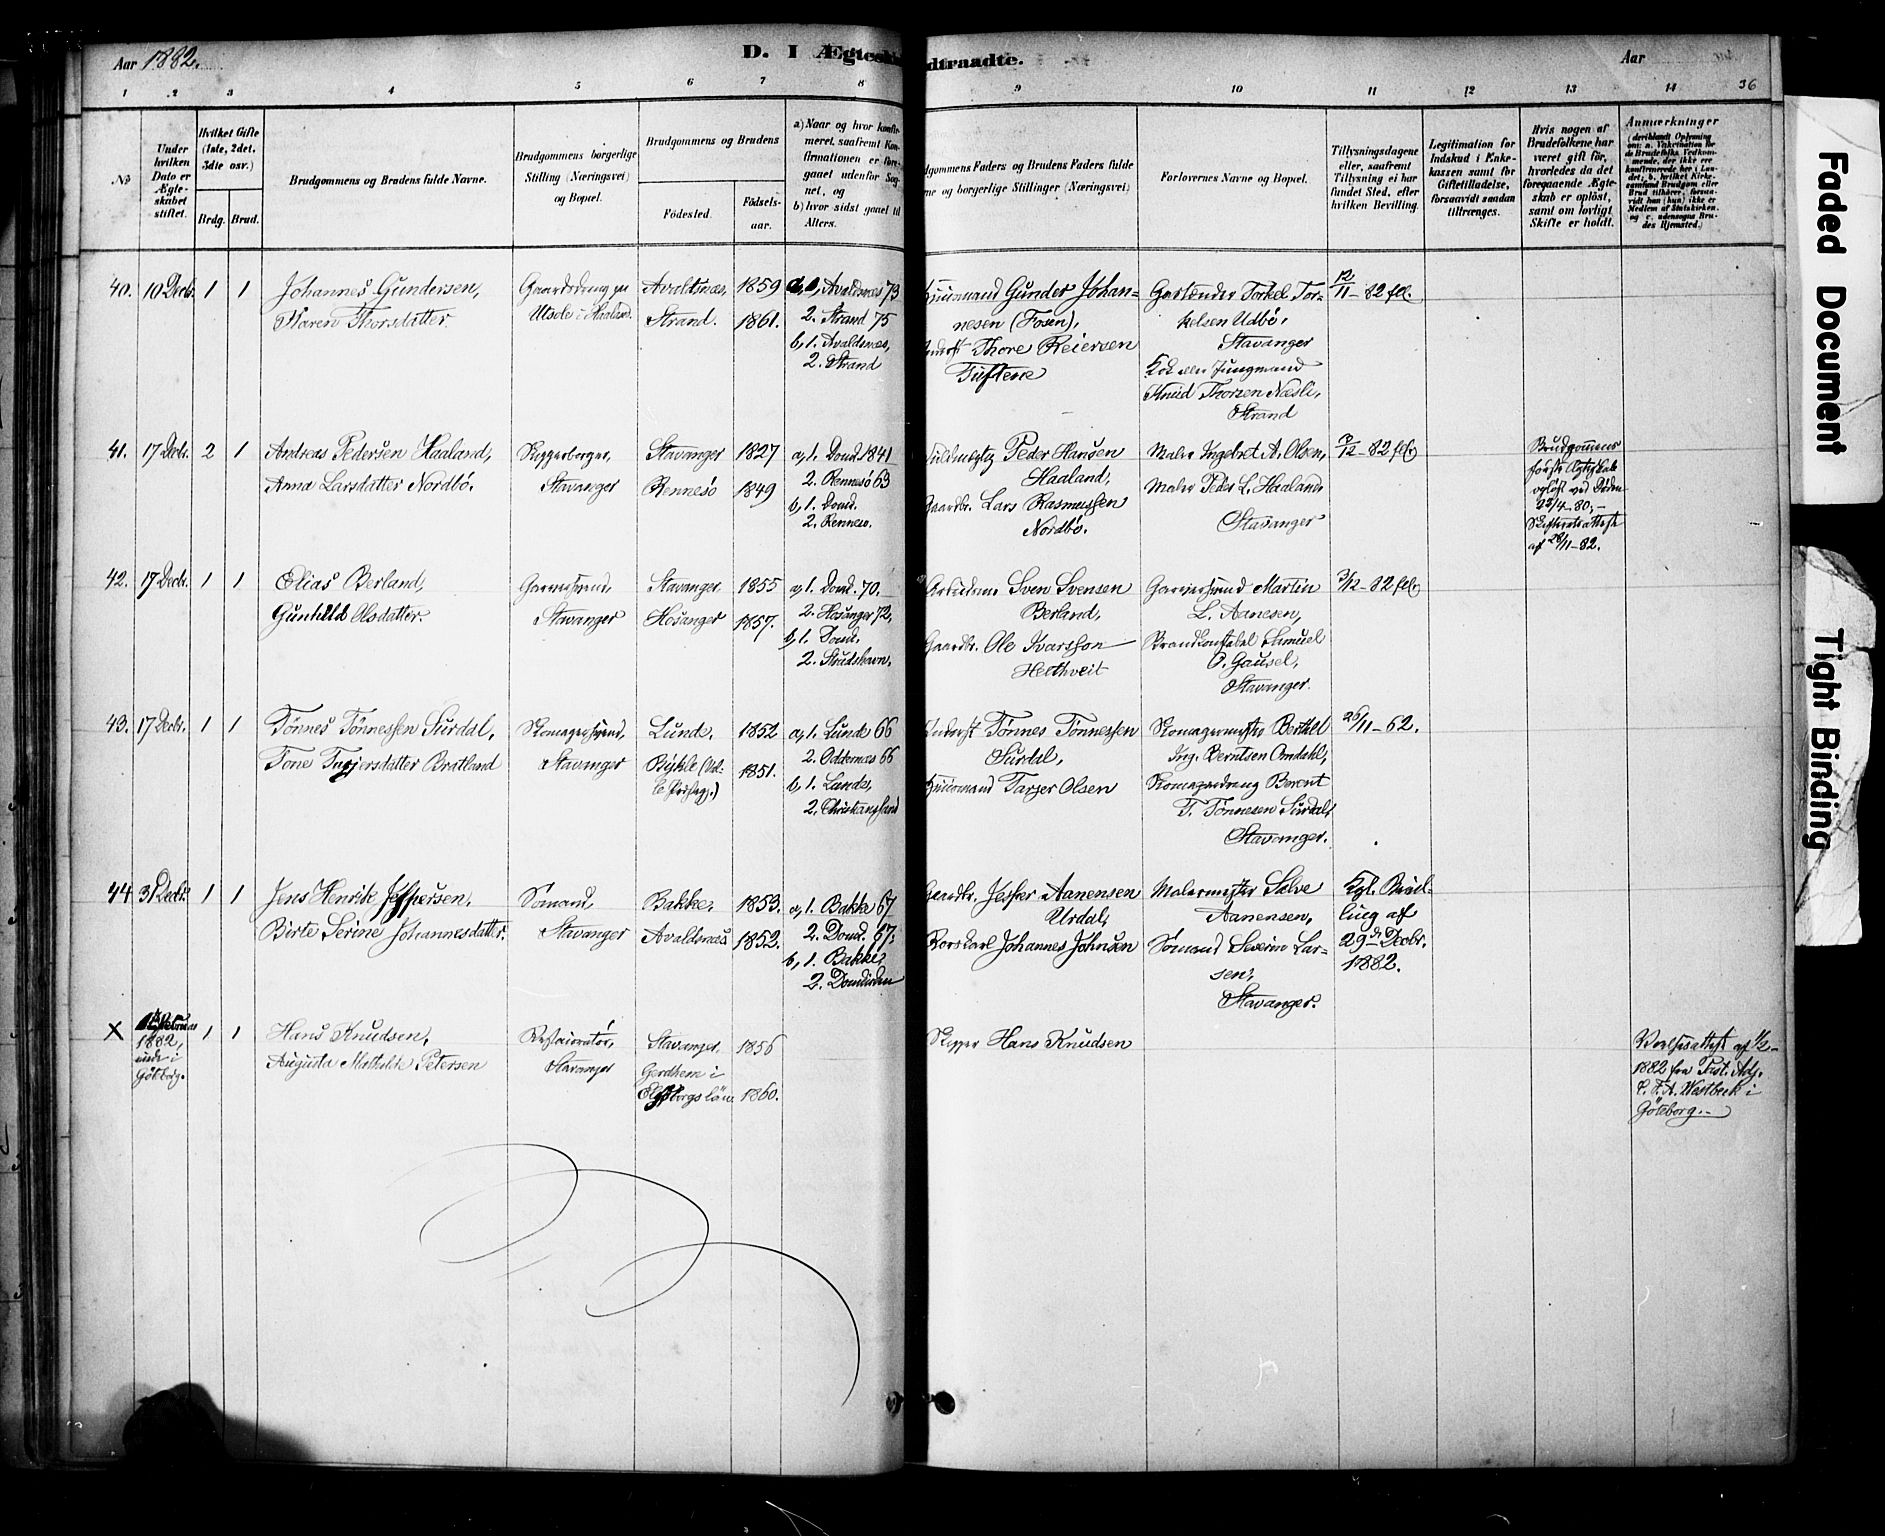 Aar 1882.
D. I Ægtesk
dtraadte.
Aar
1 2 3 4 5 6 7 8 9 10 11 12 13 14 36
No
Under hvilken Dato er Ægteskabet stiftet.
Hvilket Gifte (1ste, 2det, 3die osv.)
Brdg. Brud.
Brudgommens og Brudens fulde Navne.
Brudgommens borgerlige Stilling (Næringsvei) og Bopæl.
Brudgommens og Brudens
Fødested.
Fødselsaar.
a) Naar og hvor konfirmeret, saafremt Konfirmationen er foregaaet udenfor Sognet, og
b) hvor sidst gaaet til Alters.
dgommens Faders og Brudens Faders fulde
ne og borgerlige Stillinger (Næringsvei)
Forlovernes Navne og Bopæl.
Tillysningsdagene eller, saafremt Tillysning ei har fundet Sted, efter hvilken Bevilling.
Legitimation for Indskud i Enkekassen samt for Giftetilladelse, forsaavidt saadan tiltrænges.
Hvis nogen af Brudefolkene har været gift før, hvorledes da det foregaaende Ægteskab er opløst, samt om lovligt Skifte er holdt.
Anmærkninger
40. 10 Decb. 1 1
Johannes Gundersen,
Karen Thorsdatter.
Utsde i Haaland.
Avaldsnæs, 1859
Strand. 1861.
a, 1. Avaldsnæs 73
2. Strand 75
b, 1. Avaldsnæs,
2. Strand
Gunder Johannesen (Fosen),
Thore Reiersen
Tuftene
Gartender Torkel Torkelsen Udbø,
Stavanger
Knud Thorsen Næsli,
Strand
12/11 - 82 flb.
41. 17 Decb. 2 1
Andreas Pedersen Haaland,
Anna Larsdatter Nordbö.
Stavanger
Stavanger 1827
Rennesö 1849
a, 1. Domk. 1841
2. Rennesö 63
b, 1. Domk.
2. Rennesö.
Peder Hansen
Haaland,
Gaardbr. Lars Rasmussen
Nordbö.
Maler Ingebret A. Olsen,
Maler Peder L. Haaland,
Stavanger
3/12 - 82 flb.
Brudgommens
første Ægteskab
opløst ved Døden
23/4 - 80, -
Skifteretsattest
af 28/11 - 82.
42. 17 Decbr. 1 1
Elias Berland,
Gunhild Olsdatter.
Garversvend,
Stavanger
Stavanger 1855
Hosanger 1857.
a, 1. Domk. 70.
2. Hosanger 72,
b, 1. Domk.
2. Skudshavn.
Arbeidsm. Sven Svensen
Berland,
Gaardbr. Ole Ivarsson
Helthveit
Garversvend Martin
L. Aanesen,
Brandkonstabel Samuel
O. Gausel,
Stavanger.
3/12 - 82 flb.
43. 17 Decbr. 1 1
Tönnes Tönnessen Surdal,
Tone Targjersdatter Bratland
Skomagersvend,
Stavanger
Lunde, 1852
Bykle 1851.
a, 1. Lunde 66
2. Oddernæs 66
b, 1. Lunde,
2. Christiansand
Tönnes Tönnessen
Surdal,
Husmand Tarjer Olsen
Skomagermester Berthel
Ing. Berntsen Omdahl,
Skomagerdreng Berent
T. Tönnesen Surdal,
Stavanger.
26/11 - 62.
44 31 Decbr. 1 1
Jens Henrik Jespersen,
Birte Serine Johannesdatter.
Sömand,
Stavanger
Bakke, 1853.
Avaldsnæs 1852.
a, 1. Bakke 67
2. Domk. 67.
b, 1. Bakke,
2. Domkirken
Gaardbr. Jesper Aanensen
Urdal,
Johannes Johnsen
Malermester Sælve
Aanensen,
Sömand Severin Larsen,
Stavanger.
Kgl. Bevilling af
29de Decbr.
1882.
X
1882,
i
Göteborg.
1 1
Hans Knudsen,
Augusta Mathilde Petersen
Restauratör,
Stavanger
Stavanger. 1856
Gerdhem i
Elfsborgs län. 1860.
Skipper Hans Knudsen
Vielsesattest af 1/2 -
1882 fra Past. Adj.
C. F. A. Westbeck i
Göteborg. -
Faded Document
Tight Binding